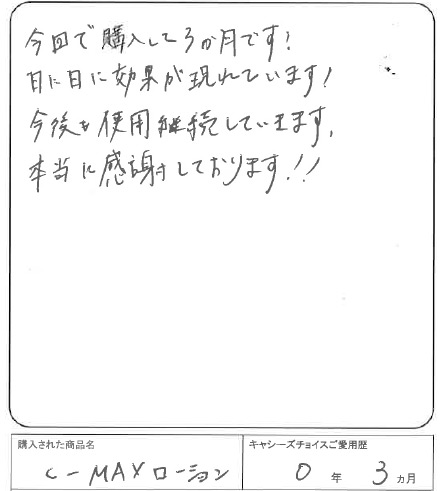 今回で購入して3か月です!
日に日に効果が現れています!
今後も使用継続していきます。
本当に感謝しております!!
購入された商品名
C-MAXローション
キャシーズチョイスご愛用歴
0年3ヵ月